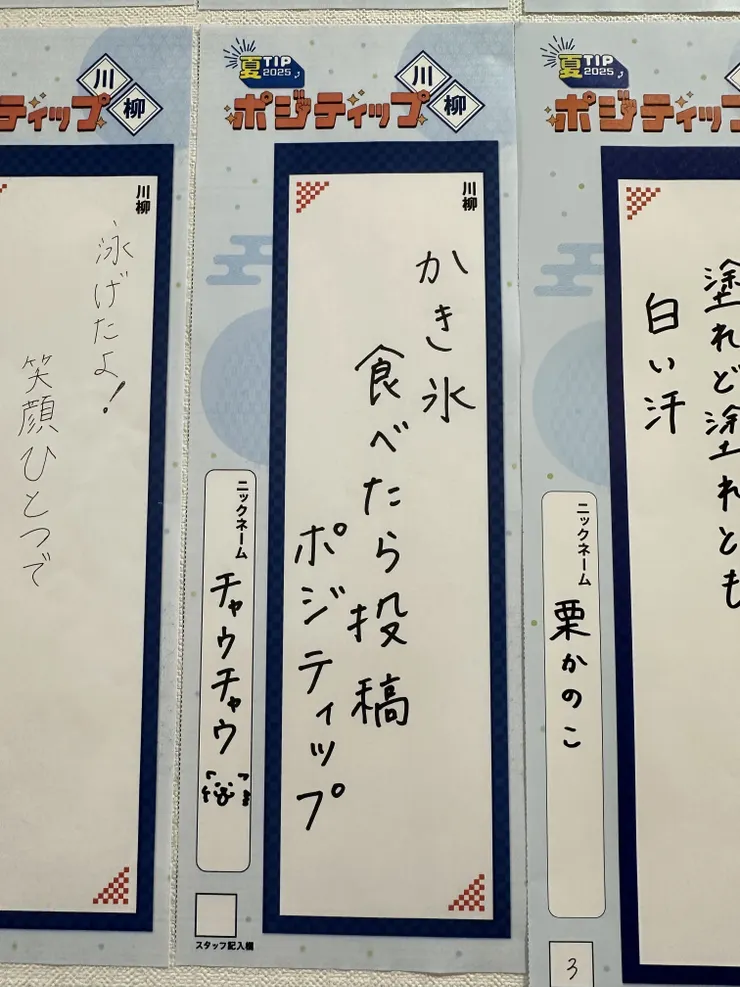 川柳
ティップ
川柳
泳げたよ!
笑顔ひとつで
夏TIP
2025
川柳
ポジティップ
川柳
かき氷
食べたら投稿
ポジティップ
ニックネーム
チャウチャウ
スタッフ記入欄
夏TIP
2025
ポジティップ
塗れど塗れども
白い汗
ニックネーム
栗かのこ
3